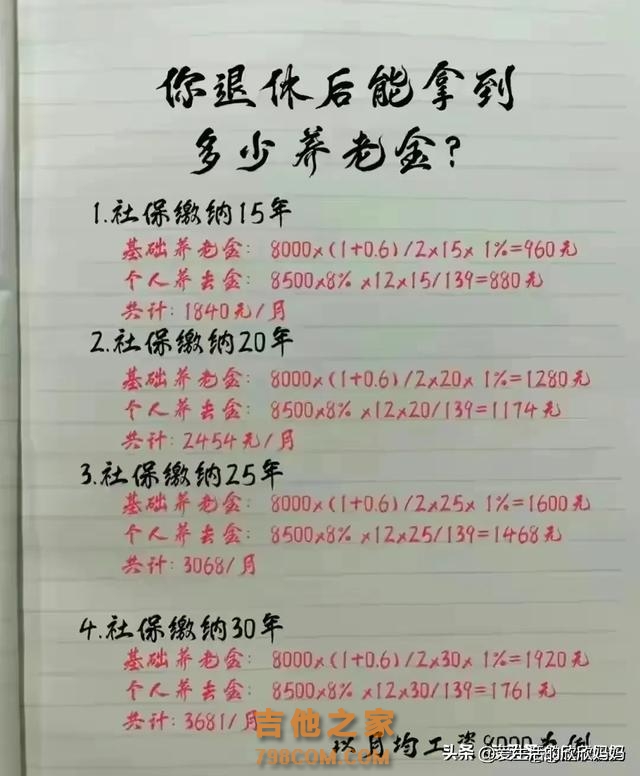 你退休后能拿到
多少养老金?
1.社保缴纳15年
基础养老金: 8000x(1+0.6)/2x15x 1%=960元
个人养去金: 8500x8% x12x15/139=880元
共计: 1840元/月
2.社保缴纳20年
基础养老金: 8000x(1+0.6)/2x20x 1%=1280元
个人养去金: 8500x8% x12x20/139=1174元
共计: 2454元/月
3.社保缴纳25年
基础养老金: 8000x(1+0.6)/2x25x 1%=1600元
个人养去金: 8500x8% x12x25/139=1468元
共计: 3068/月
4.社保缴纳30年
基础养老金: 8000x(1+0.6)/2x30x 1%=1920元
个人养去金: 8500x8% x12x30/139=1761元
共计: 3681/月
以月均工资8000为例
吉他之家
798COM.COM
头条 @爱生活的欣欣妈妈